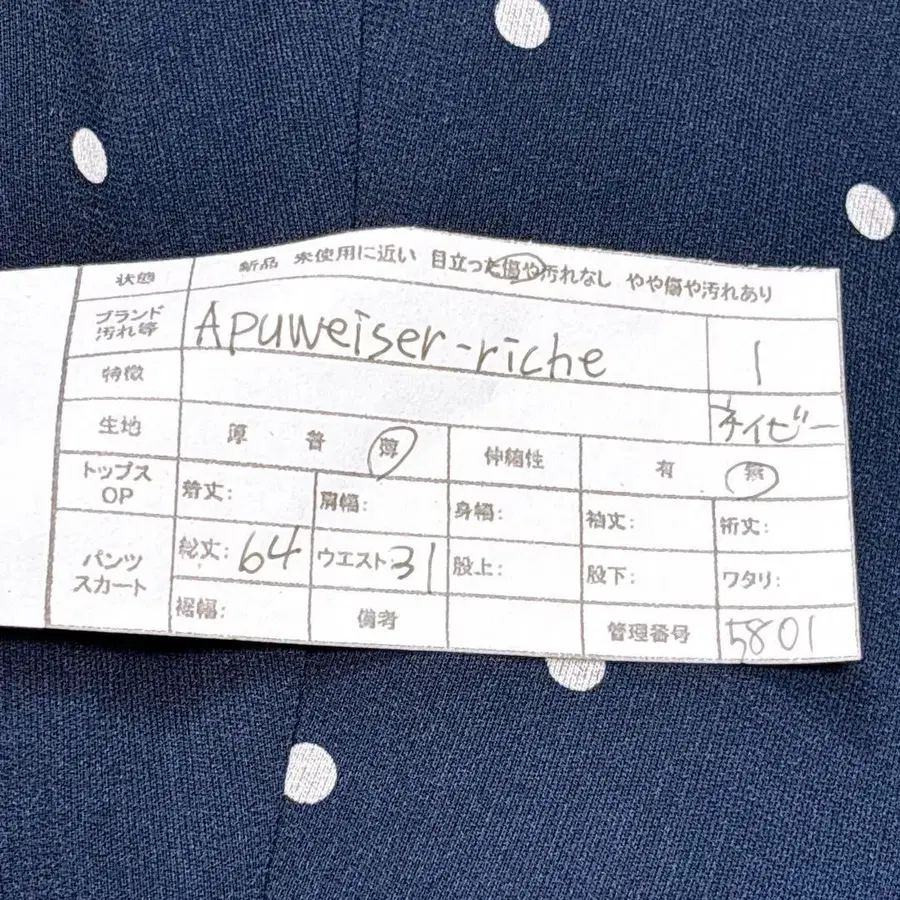 状態 新品 未使用に近い 目立った傷や汚れなし やや傷や汚れあり
ブランド Apuweiser-riche 1
汚れ等
特徴 ネイビー
生地 厚 普 薄 伸縮性 有 無
トップス
OP 着丈: 肩幅: 身幅: 袖丈: 裄丈:
パンツ 総丈: 64 ウエスト 31 股上: 股下: ワタリ:
スカート
裾幅: 備考 管理番号 5801